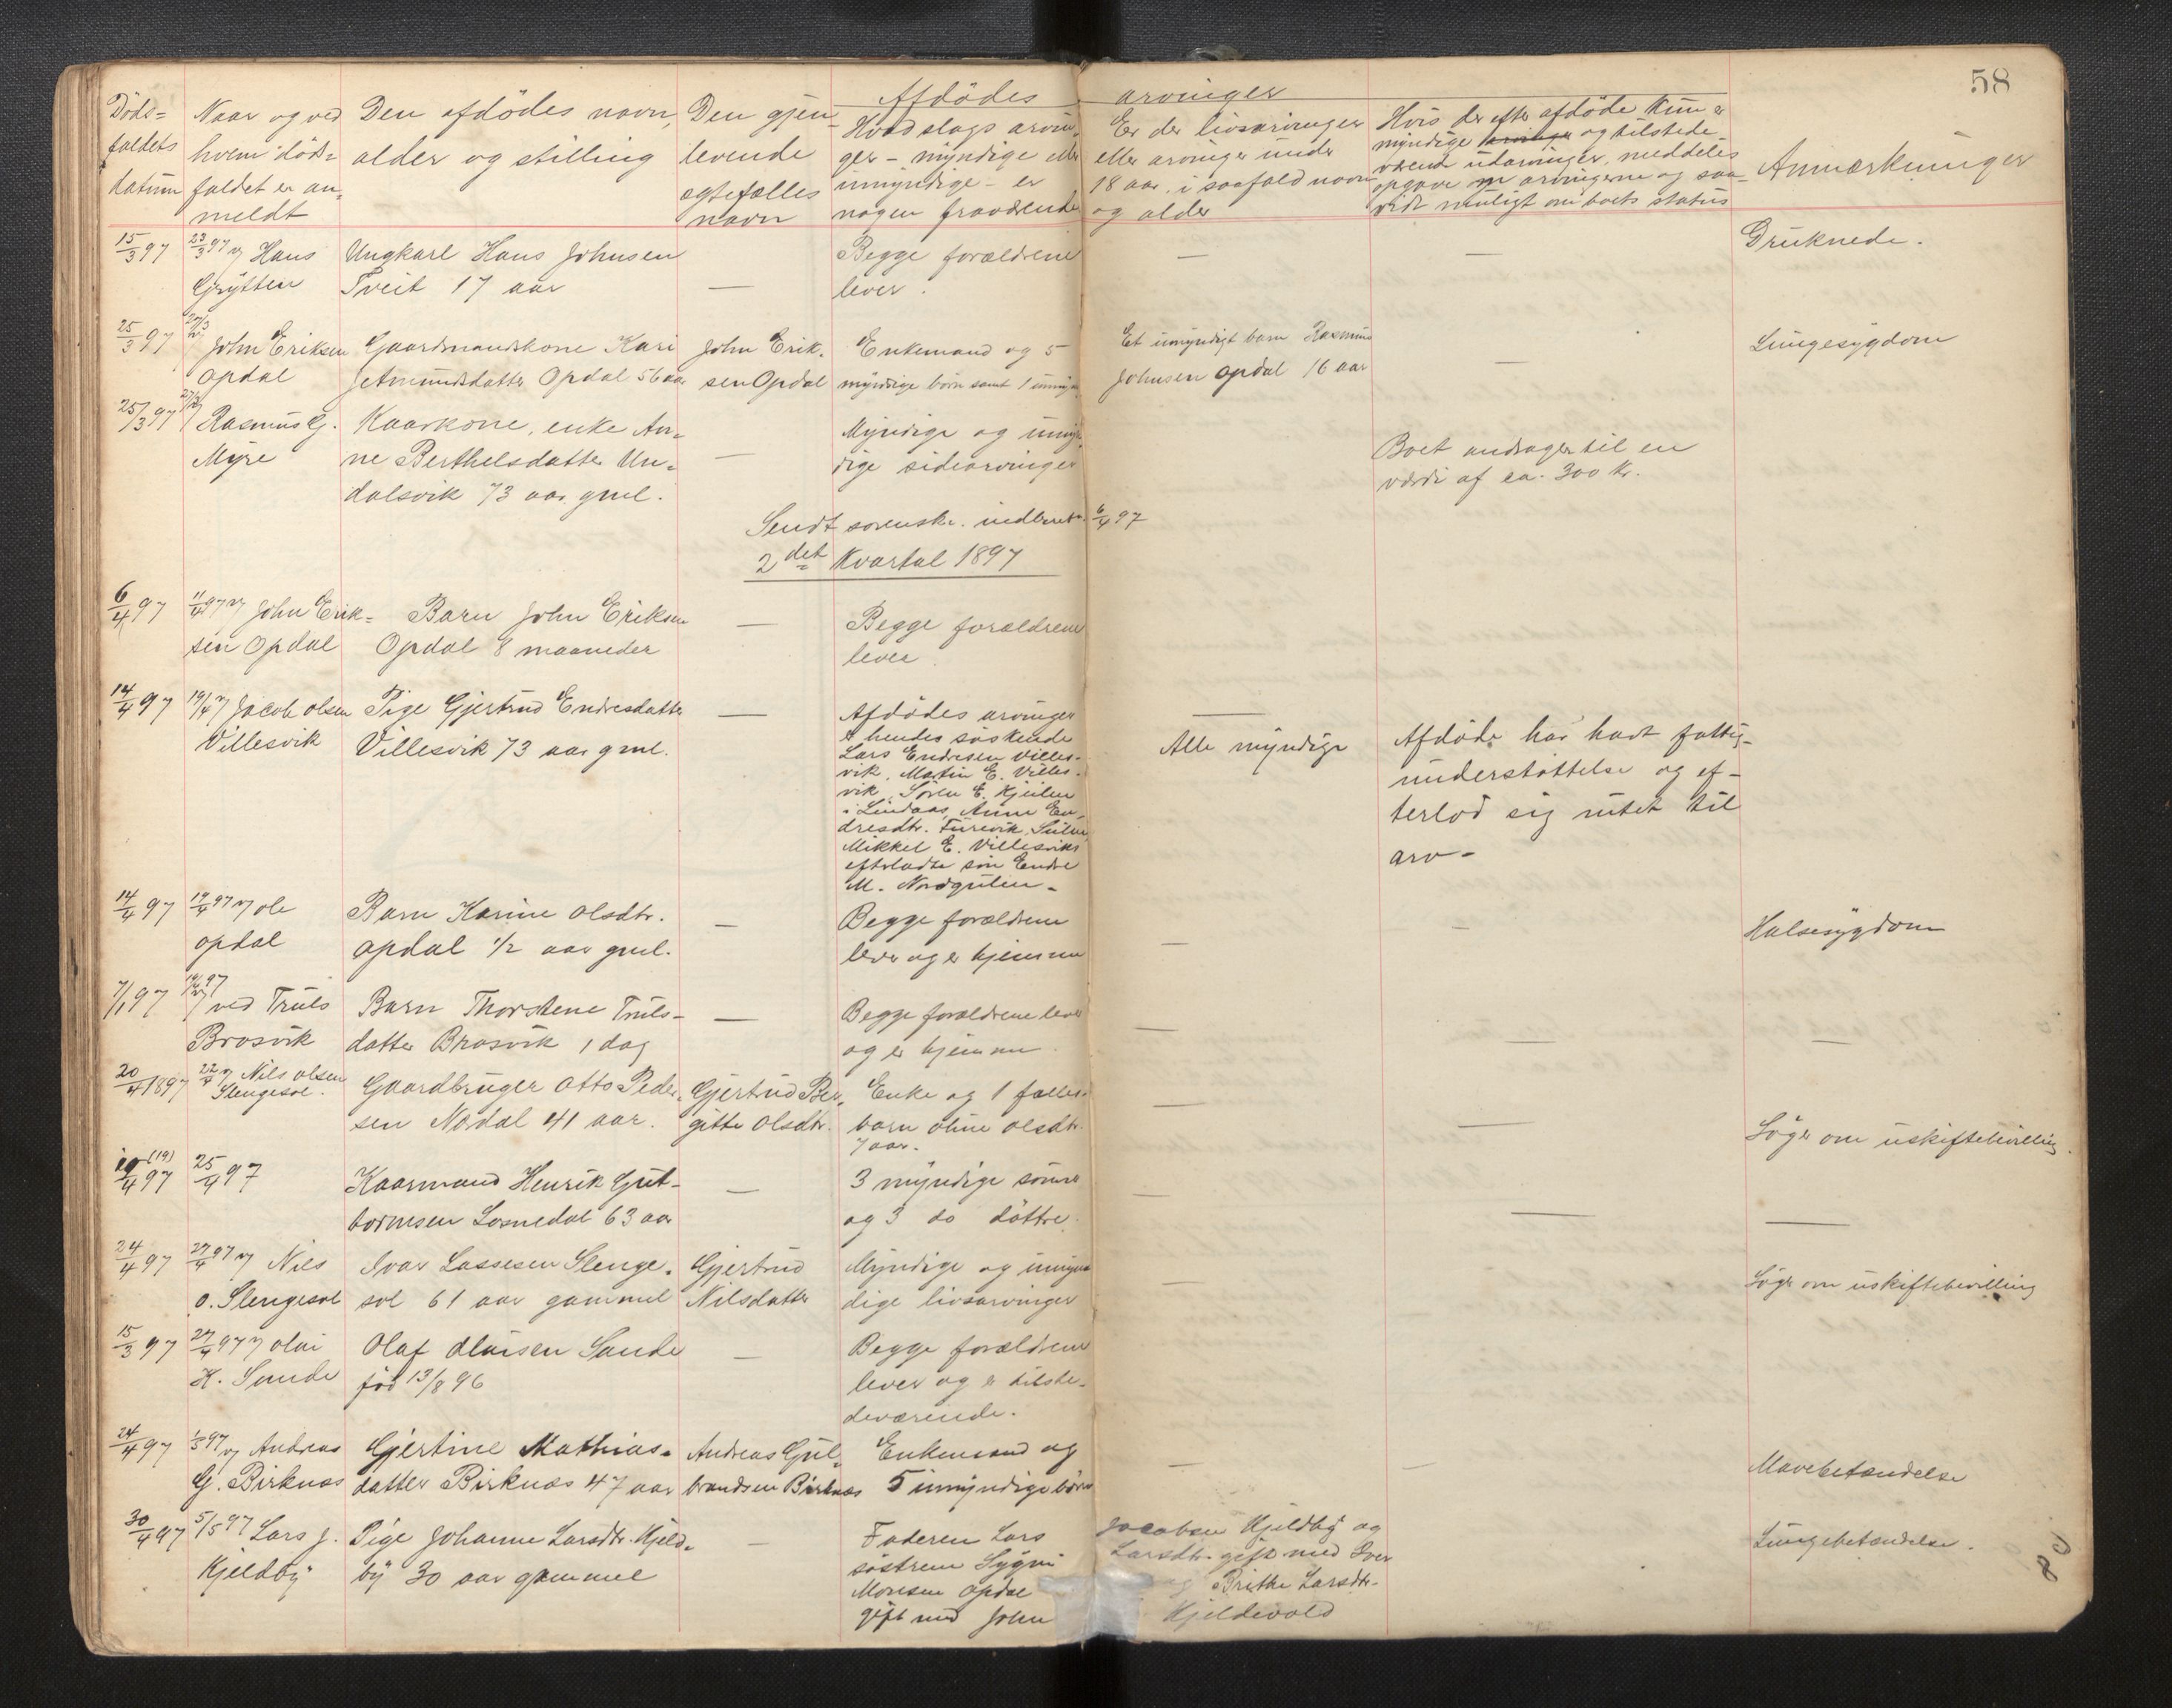 58
Afdödes arvinger
Döds=
faldets
datum
Naar og ved
hvem döds=
faldet er an=
meldt
Den afdödes navn,
alder og stilling
Den gjen-
levende
ægtefælles
navn
Hvad slags arvin-
ger – myndige eller
umyndige – er
nogen fraværende
Er der livsarvinger
eller arvinger under
18 aar, i saafald navn
og alder
Hvis der efter afdöde kun er
myndige og tilstede-
værende udarvinger, meddeles
opgave arvingerne og saa-
vidt muligt om boets status
Anmærkninger
15/3 97
23/3 97 v Hans
Grytten
Ungkarl Hans Johnsen
Tveit 17 aar
—
Begge forældrene
lever.
—
—
Druknede.
25/3 97
27/3 v John Eriksen
Opdal
Gaardmandskone Kari
Amundsdatter Opdal 56 aar
John Erik-
sen Opdal
Enkemand og 5
myndige børn samt 1 umyn.
Et umyndigt barn Rasmus
Johnsen Opdal 16 aar
—
Lungesygdom
25/3 97
27/3 Rasmus G.
Myre
Kaarkone, enke An-
ne Berthelsdatter Un-
dalsvik 73 aar gml.
—
Myndige og umyn-
dige sidearvinger
Boet andrager til en
værdi af ca. 300 Kr.
Sendt sorenskr. indberetn. 6/4 97
2det Kvartal 1897
6/4 97
11/4 97 v John Erik=
sen Opdal
Barn John Eriksen
Opdal 8 maaneder
—
Begge forældrene
lever
14/4 97
19/4 v Jacob Olsen
Villesvik
Pige Gjertrud Endresdatter
Villesvik 73 aar gml.
—
Afdödes arvinger
er hendes söskende
Lars Endresen Villes-
vik, Martin E. Villes-
vik, Sören E. Kjeilen
i Lindaas, Anne En-
dresdtr. Furevik, Sulen
Mikkel E. Villesviks
efterladte sön Endre
M. Nordgulen -
—
Alle myndige
Afdöde har havt fattig-
understöttelse og ef-
terlod sig intet til
arv -
14/4 97
19/4 97 v Ole
Opdal
Barn Karine Olsdtr.
Opdal 1/2 aar gml.
—
Begge forældrene
lever og er hjemme
—
—
Halsesygdom
7/1 97
19/4 97
v ved Truls
Brosvik
Barn Thorstene Truls-
datter Brosvik 1 dag
—
Begge forældrene lever
og er hjemme.
—
—
—
20/4 1897
22/4 v Nils Olsen
Slengesol.
Gaardbruger Otto Peder-
sen Nodal 41 aar.
Gjertrud Ber-
gitte Olsdtr.
Enke og 1 fælles-
barn Oline Olsdtr.
7 aar.
—
—
Söger om uskiftebevilling
(19)
/4 97
25/4 97
Kaarmand Henrik Gut-
tormsen Losnedal 63 aar
—
3 myndige sönner
og 3 do döttre.
—
—
—
24/4 97
27/4 97 v Nils
O. Slengesol
Ivar Lassesen Slenge-
sol 61 aar gammel
Gjertrud
Nilsdatter
Myndige og umyn-
dige livsarvinger
—
—
Söger om uskiftebevilling
15/3 97
27/4 97 v Olai
K. Sande
Olaf Olaisen Sande
föd 13/8 96
—
Begge forældrene
lever og er tilste-
deværende.
24/4 97
1/5 97 v Andreas
G. Birknæs
Gjertine Mathias-
datter Birknæs 47 aar
Andreas Gul-
brandsen Birknæs
Enkemand og
5 umyndige börn
—
—
Mavebetændelse
30/4 97
5/5 97 Lars J.
Kjeldby
Pige Johanne Larsdtr. Kjeld-
by 30 aar gammel
—
Faderen Lars Jacobsen Kjeldby og
söstrene Sygni Larsdtr. gift med Iver
Monsen Opdal og Brithe Larsdtr.
gift med John Kjeldevold
Lungebetændelse.